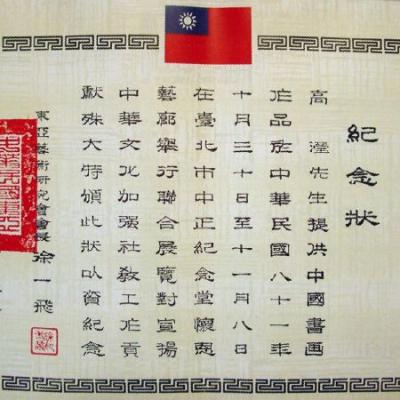 紀念狀
高瀅先生提供中國書画
作品於中華民國八十一年
十月三十日至十一月八日
在臺北市中正紀念堂懷恩
藝廊舉行聯合展覽對宣揚
中華文化加强社教工作貢
獻殊大特頒此狀以資紀念
東亞藝術研究會會長 徐一飛